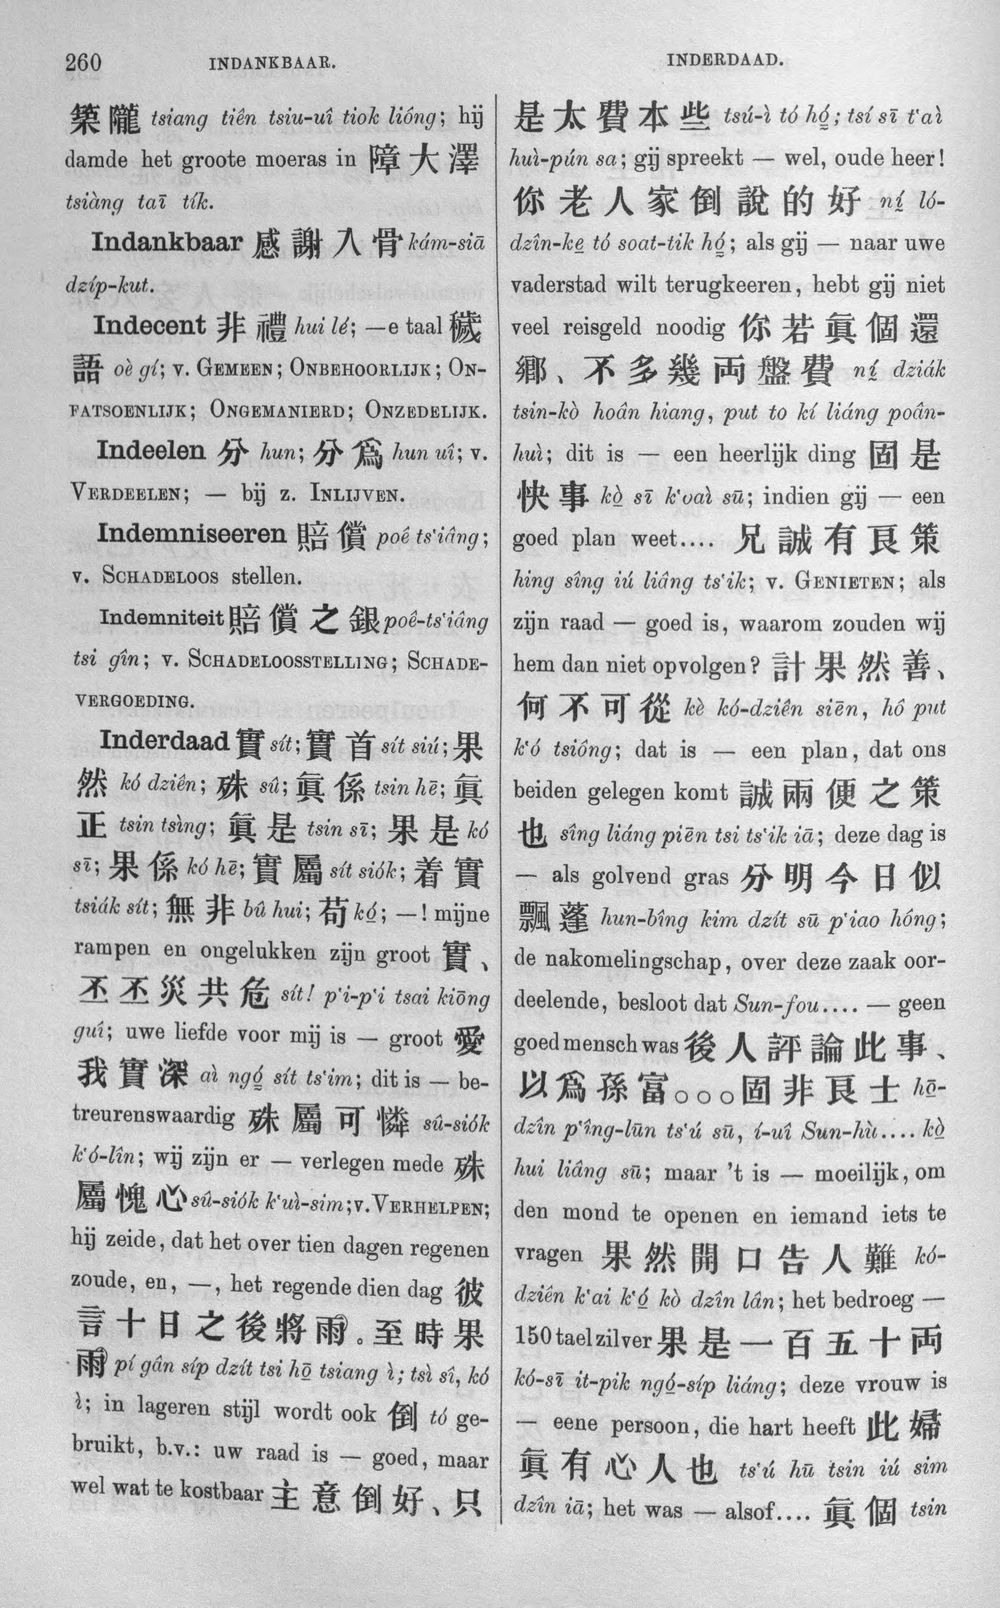 260 INDANKBAAR. INDERDAAD.
築隴 tsiang tiên tsiu-uî tiok lióng; hij
damde het groote moeras in 障大澤
tsiàng taī tík.
Indankbaar 感謝入骨 kám-siā
dzíp-kut.
Indecent 非禮 hui lé; —e taal 穢
語 oè gí; v. GEMEEN; ONBEHOORLIJK; ON-
FATSOENLIJK; ONGEMANIERD; ONZEDELIJK.
Indeelen 分 hun; 分爲 hun uî; v.
VERDEELEN; — bij z. INLIJVEN.
Indemniseeren 賠償 poê ts‘iâng;
v. SCHADELOOS stellen.
Indemniteit 賠償之銀 poê-ts‘iâng
tsi gîn; v. SCHADELOOSSTELLING; SCHADE-
VERGOEDING.
Inderdaad 實 sít; 實首 sít siú; 果
然 kó dziên; 殊 sû; 眞係 tsin hē; 眞
正 tsin tsìng; 眞是 tsin sī; 果是 kó
sī; 果係 kó hē; 實屬 sít siók; 着實
tsiák sít; 無非 bû hui; 苟 kó̤; —! mijne
rampen en ongelukken zijn groot 實、
丕丕災共危 sít! p‘i-p‘i tsai kiōng
guî; uwe liefde voor mij is — groot 愛
我實深 aì ngó̤ sít ts‘im; dit is — be-
treurenswaardig 殊屬可憐 sû-siók
k‘ó-lîn; wij zijn er — verlegen mede 殊
屬愧心 sû-siók k‘uì-sim; v. VERHELPEN;
hij zeide, dat het over tien dagen regenen
zoude, en, —, het regende dien dag 彼
言十日之後將雨。至時果
雨 pí gân síp dzít tsi hō̤ tsiang ì; tsì sî, kó
ì; in lageren stijl wordt ook 倒 tó ge-
bruikt, b.v.: uw raad is — goed, maar
wel wat te kostbaar 主意倒好、只
是太費本些 tsú-ì tó hó̤; tsí sī t‘aì
huì-pún sa; gij spreekt — wel, oude heer!
你老人家倒說的好 ní̤ ló-
dzîn-ke̤ tó soat-tik hó̤; als gij — naar uwe
vaderstad wilt terugkeeren, hebt gij niet
veel reisgeld noodig 你若眞個還
鄉、不多幾両盤費 ní̤ dziák
tsin-kò hoân hiang, put to kí liáng poân-
huì; dit is — een heerlijk ding 固是
快事 kò̤ sī k‘oaì sū; indien gij — een
goed plan weet.... 兄誠有良策
hing sîng iú liâng ts‘ik; v. GENIETEN; als
zijn raad — goed is, waarom zouden wij
hem dan niet opvolgen? 計果然善、
何不可從 kè kó-dziên siēn, hô put
k‘ó tsiông; dat is — een plan, dat ons
beiden gelegen komt 誠兩便之策
也 sîng liáng piēn tsi ts‘ik iā; deze dag is
— als golvend gras 分明今日似
飄蓬 hun-bîng kim dzít sū p‘iao hóng;
de nakomelingschap, over deze zaak oor-
deelende, besloot dat Sun-fou.... — geen
goed mensch was 後人評論此事、
以爲孫富○○○固非良士 hō̤-
dzîn p‘îng-lūn ts‘ú sū, í-uî Sun-hù.... kò̤
hui liâng sū; maar 't is — moeilijk, om
den mond te openen en iemand iets te
vragen 果然開口告人難 kó-
dziên k‘ai k‘ó̤ kò dzîn lân; het bedroeg —
150 tael zilver 果是一百五十両
kó-sī it-pik ngó̤-síp liáng; deze vrouw is
— eene persoon, die hart heeft 此婦
眞有心人也 ts‘ú hū tsin iú sim
dzîn iā; het was — alsof.... 眞個 tsin